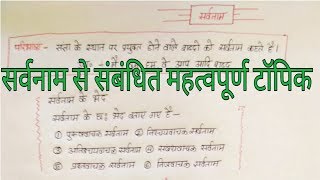 सर्वनाम
परिभाषा - संज्ञा के स्थान पर प्रयुक्त होने वाले शब्दों को सर्वनाम कहते हैं।
सर्वनाम से संबधित महत्वपूर्ण टॉपिक
सर्वनाम के भेद
सर्वनाम के छः भेद बताए गए हैं -
① पुरुषवाचक सर्वनाम ② निश्चयवाचक सर्वनाम
③ अनिश्चयवाचक सर्वनाम ④ संबंधवाचक सर्वनाम
⑤ प्रश्नवाचक सर्वनाम ⑥ निजवाचक सर्वनाम